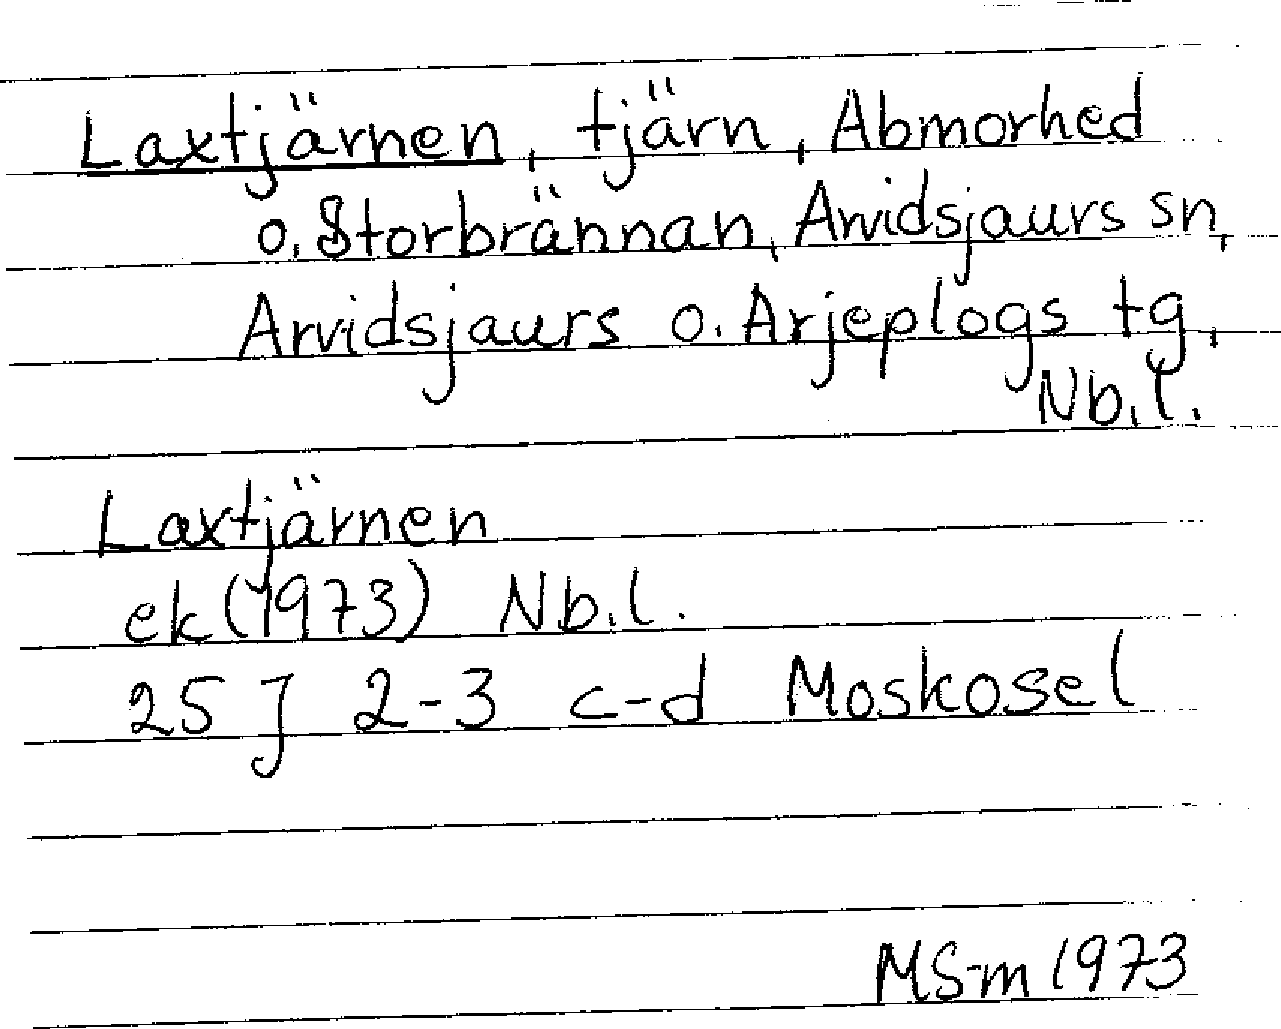 Laxtjärnen, tjärn, Abmorhed
o. Storbrännan, Arvidsjaurs sn,
Arvidsjaurs o. Arjeplogs tg,
Nb.l.
Laxtjärnen
ek (1973) Nb.l.
25 J 2-3 c-d Moskosel
MS-m 1973